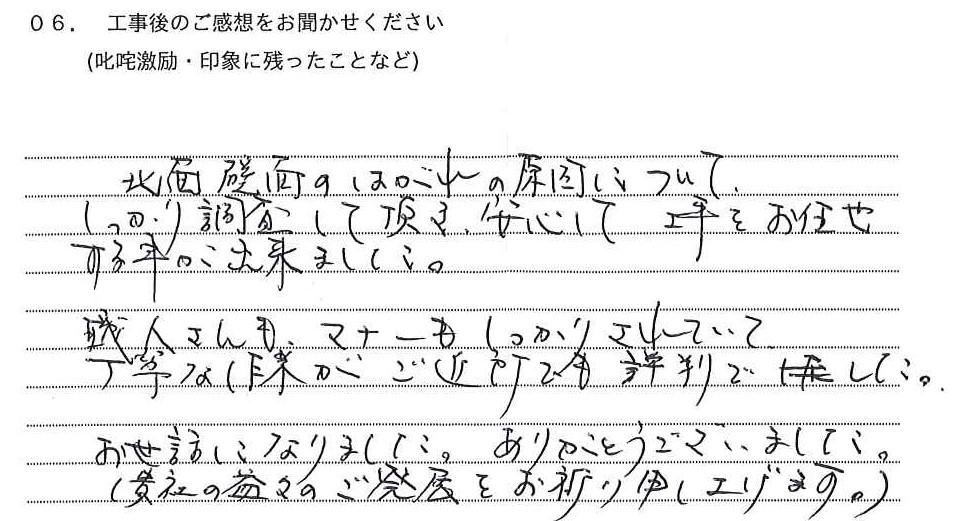 ０６．　工事後のご感想をお聞かせください
(叱咤激励・印象に残ったことなど)
北面壁面のはがれの原因について、
しっかり調査して頂き、安心して 工事をお任せ
する事が出来ました。
職人さんも、マナーもしっかりされていて
丁寧な作業がご近所でも評判でした。
お世話になりました。ありがとうございました。
(貴社の益々のご発展をお祈り申し上げます。)